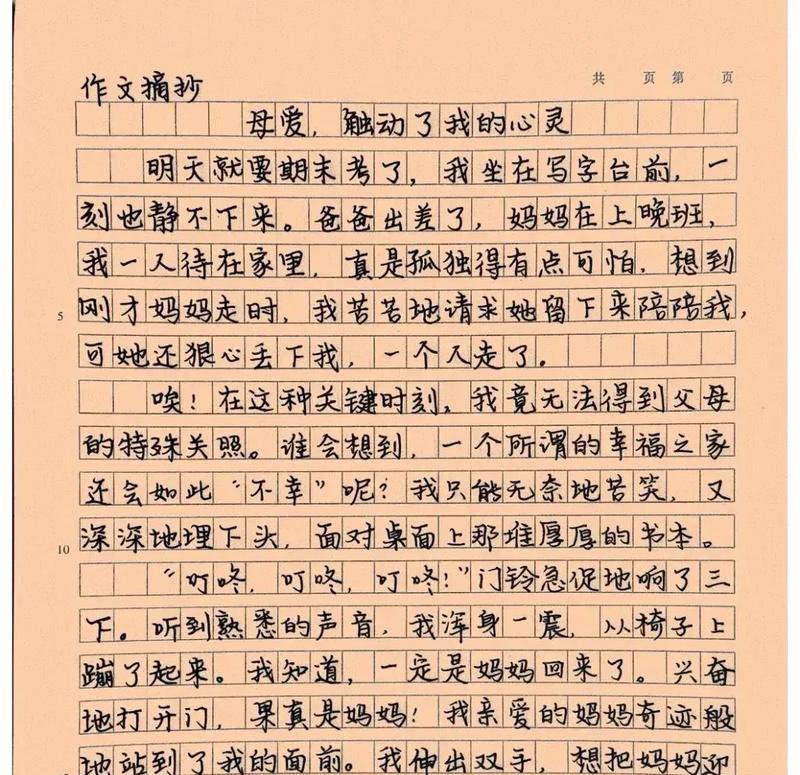 共 页 第 页
作文摘抄
母爱，触动了我的心灵
明天就要期末考了，我坐在写字台前，一
刻也静不下来。爸爸出差了，妈妈在上晚班，
我一人待在家里，真是孤独得有点可怕，想到
5
刚才妈妈走时，我苦苦地请求她留下来陪陪我，
可她还狠心丢下我，一个人走了.
唉！在这种关键时刻，我竟无法得到父母
的特殊关照。谁会想到，一个所谓的幸福之家
还会如此“不幸”呢？我只能无奈地苦笑，又
10
深深地埋下头，面对桌面上那堆厚厚的书本。
“叮咚，叮咚，叮咚！”门铃急促地响了三
下。听到熟悉的声音，我浑身一震，从椅子上
蹦了起来。我知道，一定是妈妈回来了。兴奋
地打开门，果真是妈妈！我亲爱的妈妈奇迹般
地站到了我的面前。我伸出双手，想把妈妈迎